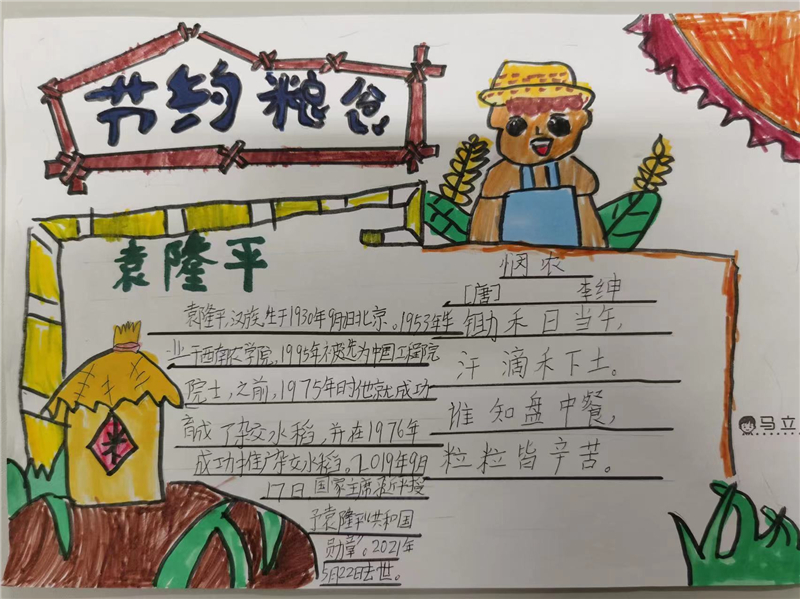 节约粮仓
袁隆平
袁隆平,汉族,生于1930年9月1日北京。1953年毕
业于西南农学院,1995年被选为中国工程院
院士,之前,1975年时他就成功
育成了杂交水稻,并在1976年
成功推广杂交水稻。2019年9月
17日国家主席习近平授
予袁隆平"共和国
勋章"。2021年
5月22日去世。
悯农
[唐] 李绅
锄禾日当午,
汗滴禾下土。
谁知盘中餐,
粒粒皆辛苦。
马立